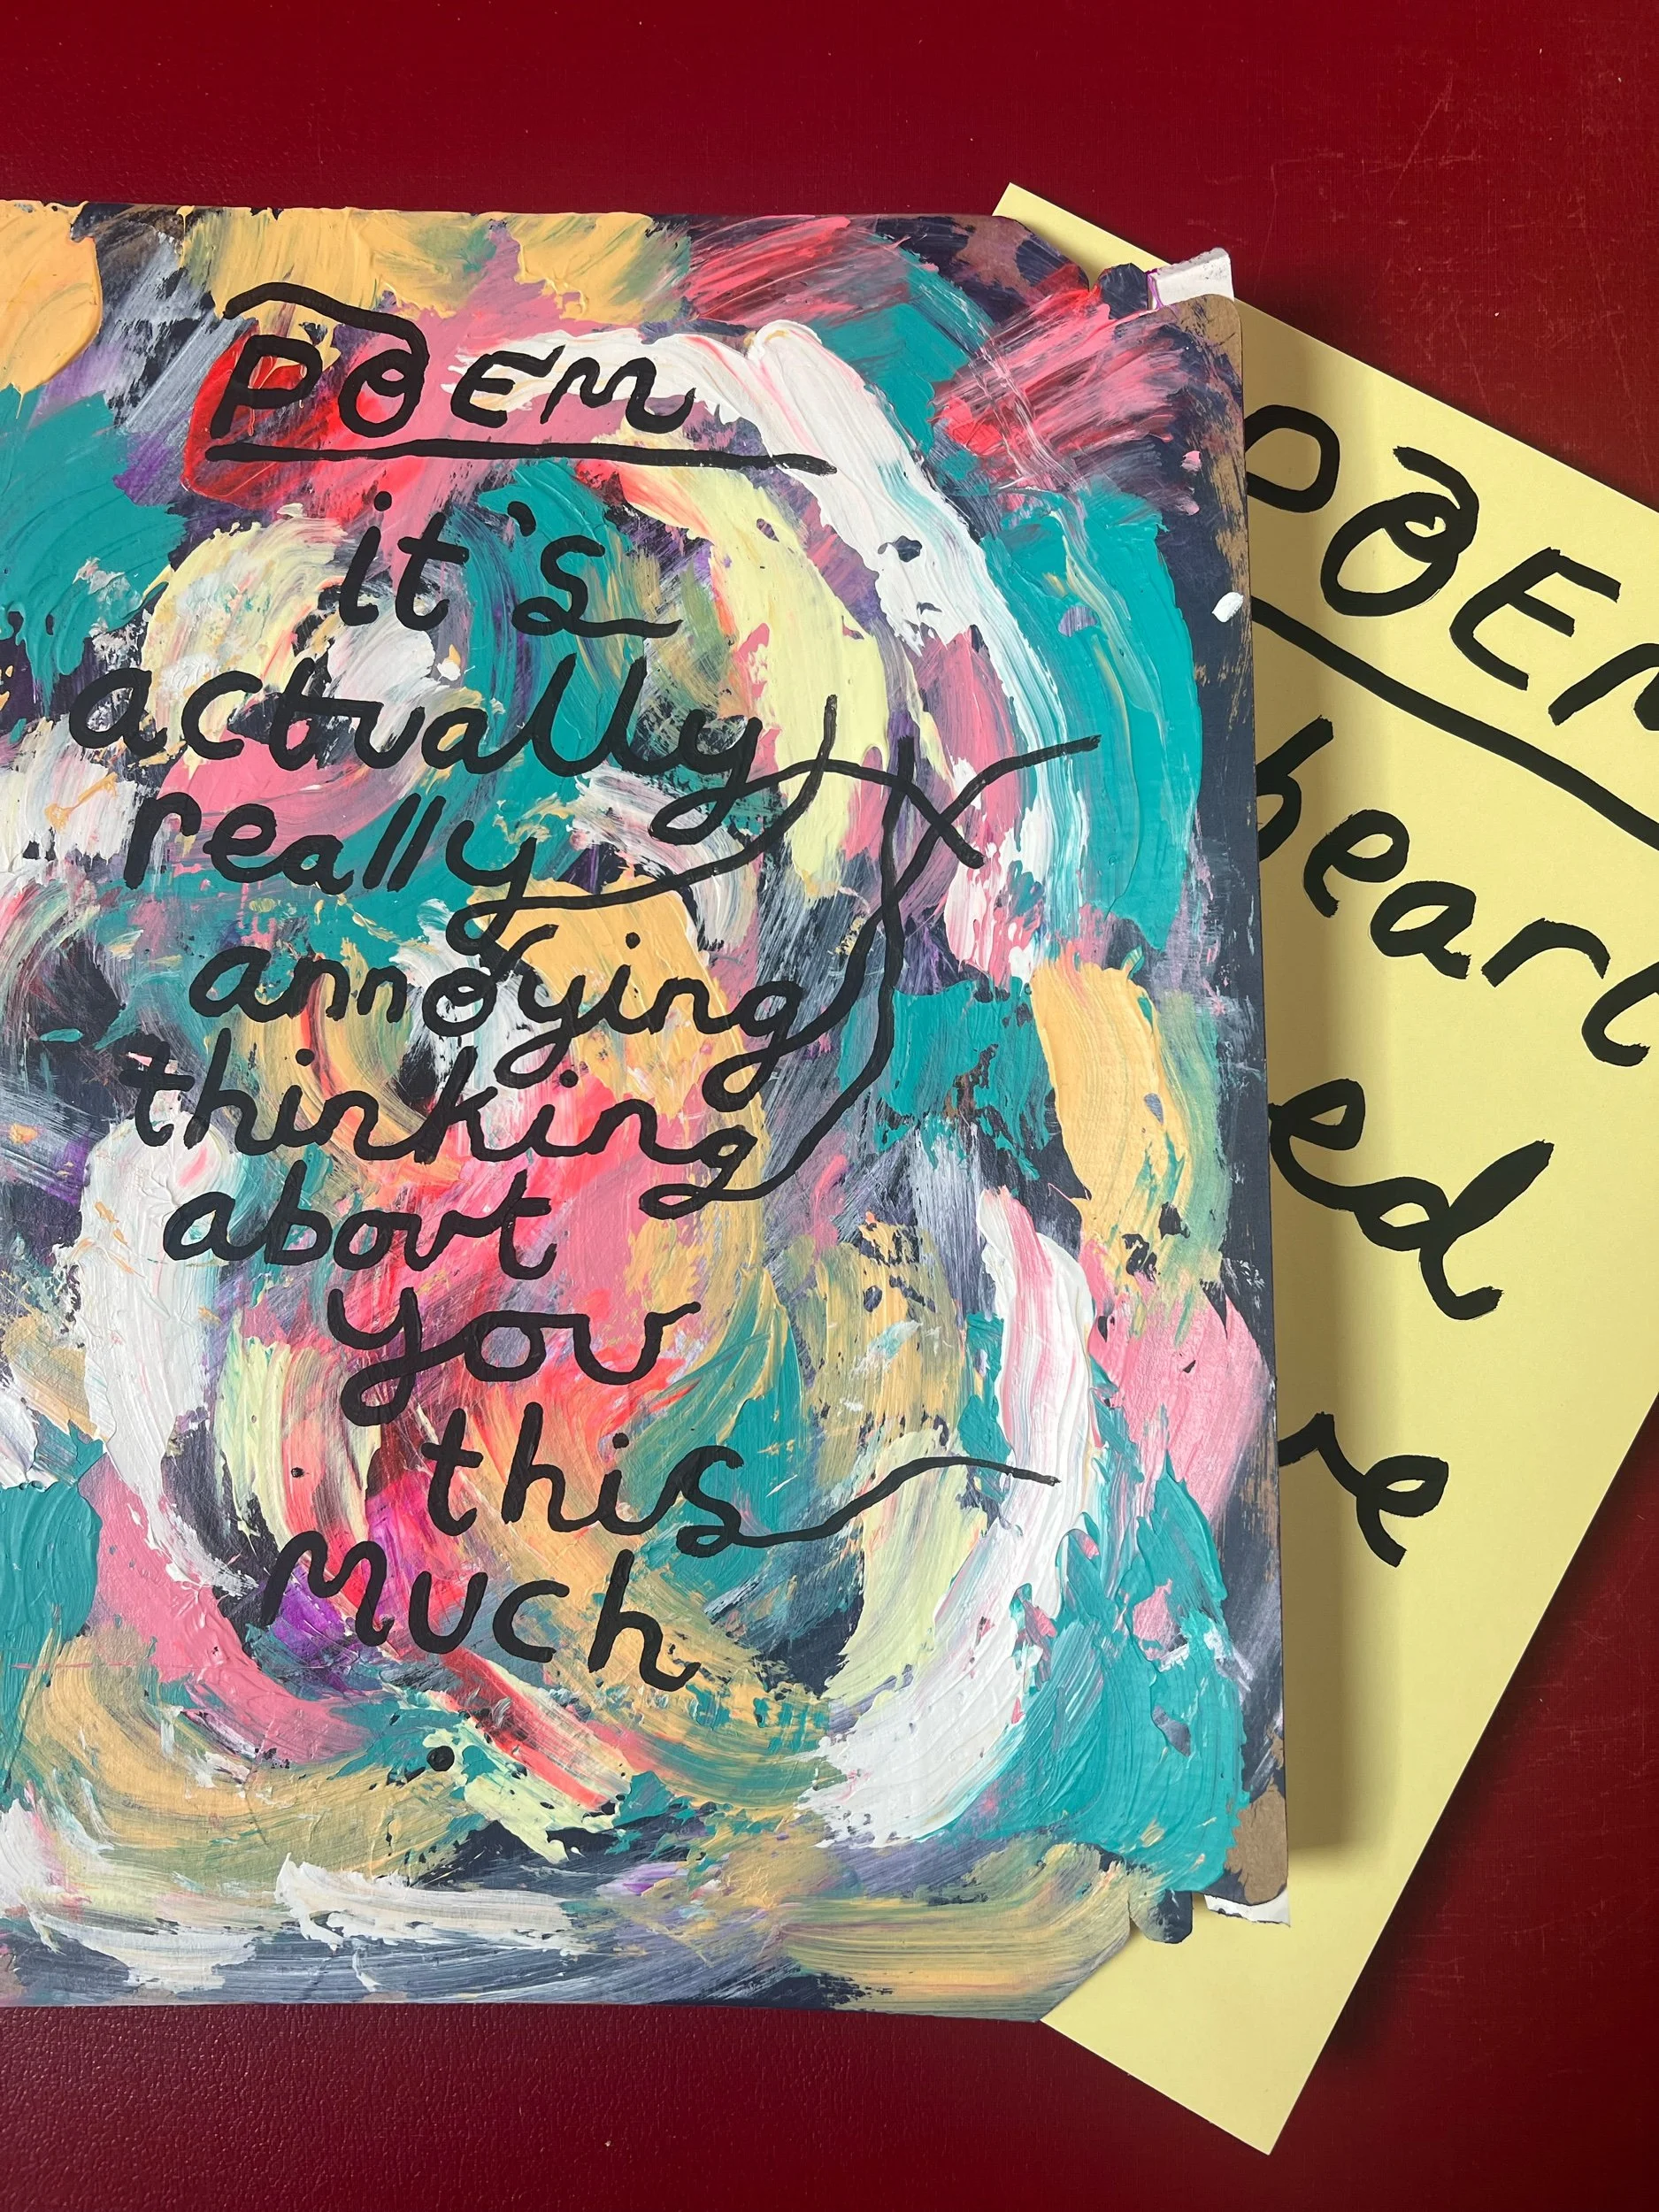 POEM
it's
actually
really
annoying
thinking
about
you
this
much
.
POEM
heart
ed